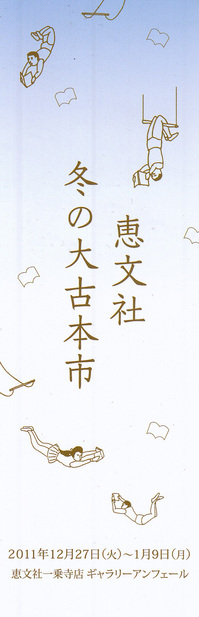 恵文社
冬の大古本市
2011年12月27日(火)~1月9日(月)
恵文社一乗寺店 ギャラリーアンフェール